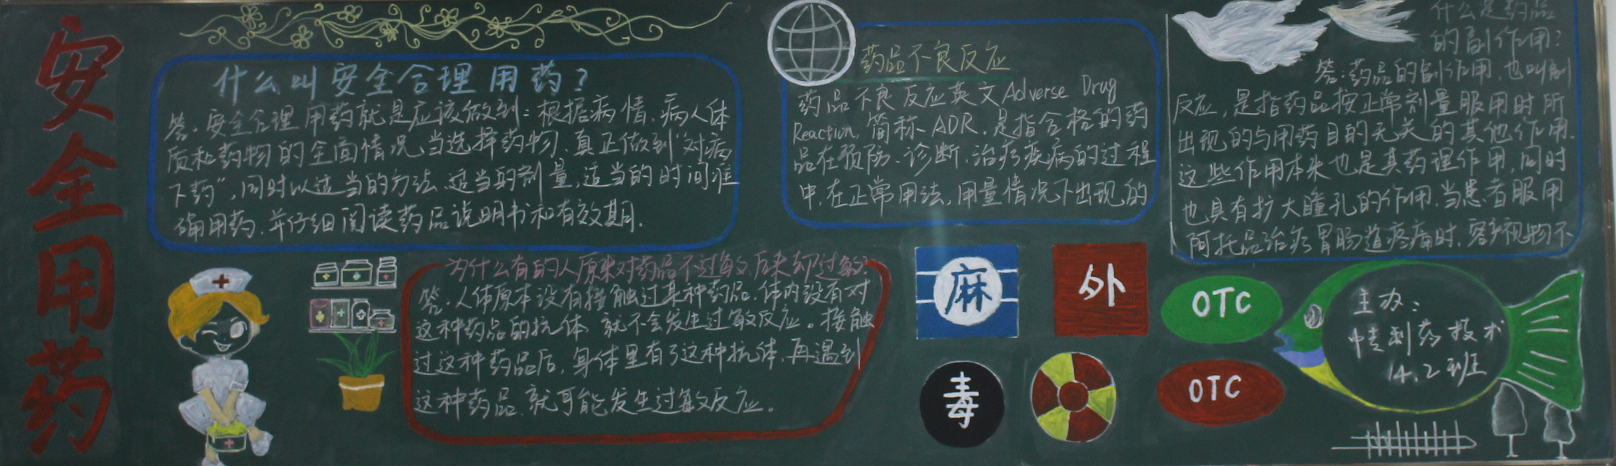 安全用药
什么叫安全合理用药?
答:安全合理用药就是应该做到:根据病情、病人体
质和药物的全面情况,当选择药物,真正做到“对病
下药”,同时以适当的方法、适当的剂量,适当的时间准
确用药,并仔细阅读药品说明书和有效期.
药品不良反应
药品不良反应英文Adverse Drug
Reaction,简称ADR,是指合格的药
品在预防、诊断、治疗疾病的过程
中,在正常用法,用量情况下出现的
什么是药品
的副作用?
答:药品的副作用,也叫副
反应,是指药品按正常剂量服用时所
出现的与用药目的无关的其他作用.
这些作用本来也是其药理作用,同时
也具有扩大瞳孔的作用.当患者服用
阿托品治疗胃肠道疼痛时,容易视物不
为什么有的人原来对药品不过敏后来却过敏
答:人体原本没有接触过某种药品,体内没有对
这种药品的抗体,就不会发生过敏反应。接触
过这种药品后,身体里有了这种抗体,再遇到
这种药品,就可能发生过敏反应。
麻
外
OTC
毒
OTC
主办:
制药技术
14.2班